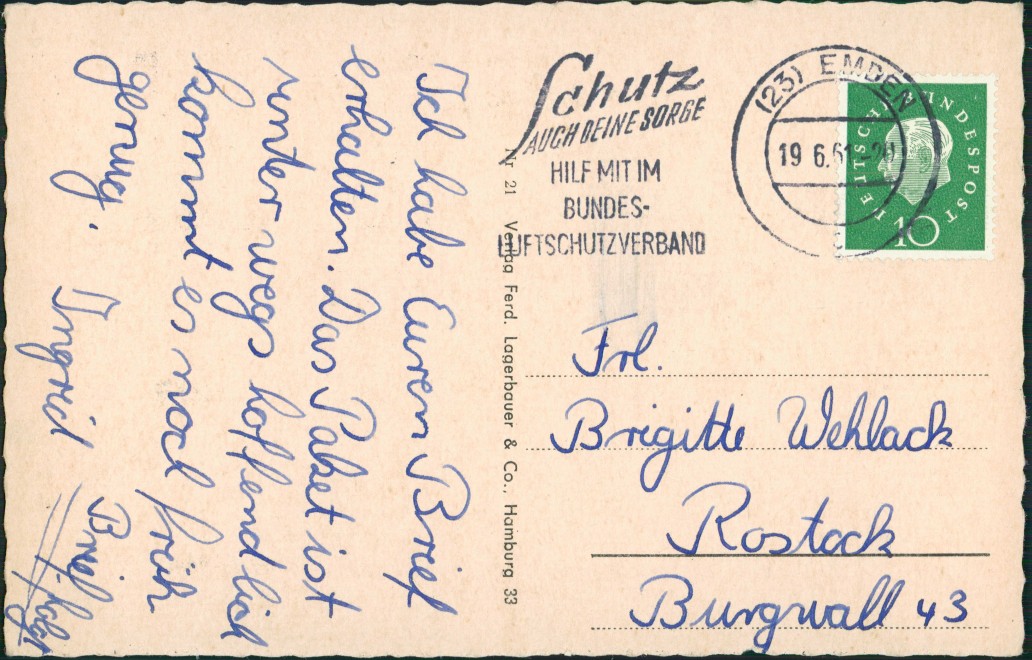 Ich habe Euren Brief
erhalten. Das Paket ist
unterwegs hoffendlich
kommt es noch früh
genug.
Ingrid
Brief folgt
Nr 21 Verlag Ferd. Lagerbauer & Co., Hamburg 33
Schutz
AUCH DEINE SORGE
HILF MIT IM
BUNDES-
LUFTSCHUTZVERBAND
(23) EMDEN
19 6.61-20
DEUTSCHE BUNDESPOST
10
Frl.
Brigitte Wehlack
Rostock
Burgwall 43